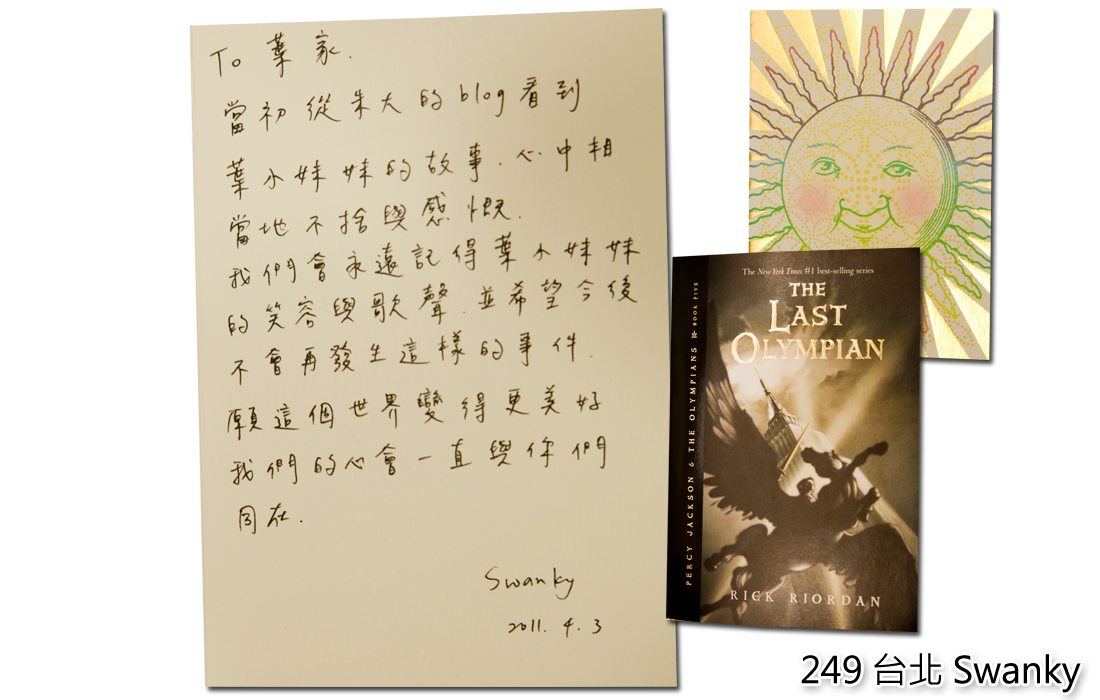 To 葉家.
當初從朱大的blog看到
葉小妹妹的故事.心中相
當地不捨與感慨.
我們會永遠記得葉小妹妹
的笑容與歌聲.並希望今後
不會再發生這樣的事件.
願這個世界變得更美好
我們的心會一直與你們
同在.
Swanky
2011. 4. 3
The New York Times #1 best-selling series
THE
LAST
OLYMPIAN
PERCY JACKSON & THE OLYMPIANS BOOK FIVE
RICK RIORDAN
249 台北 Swanky